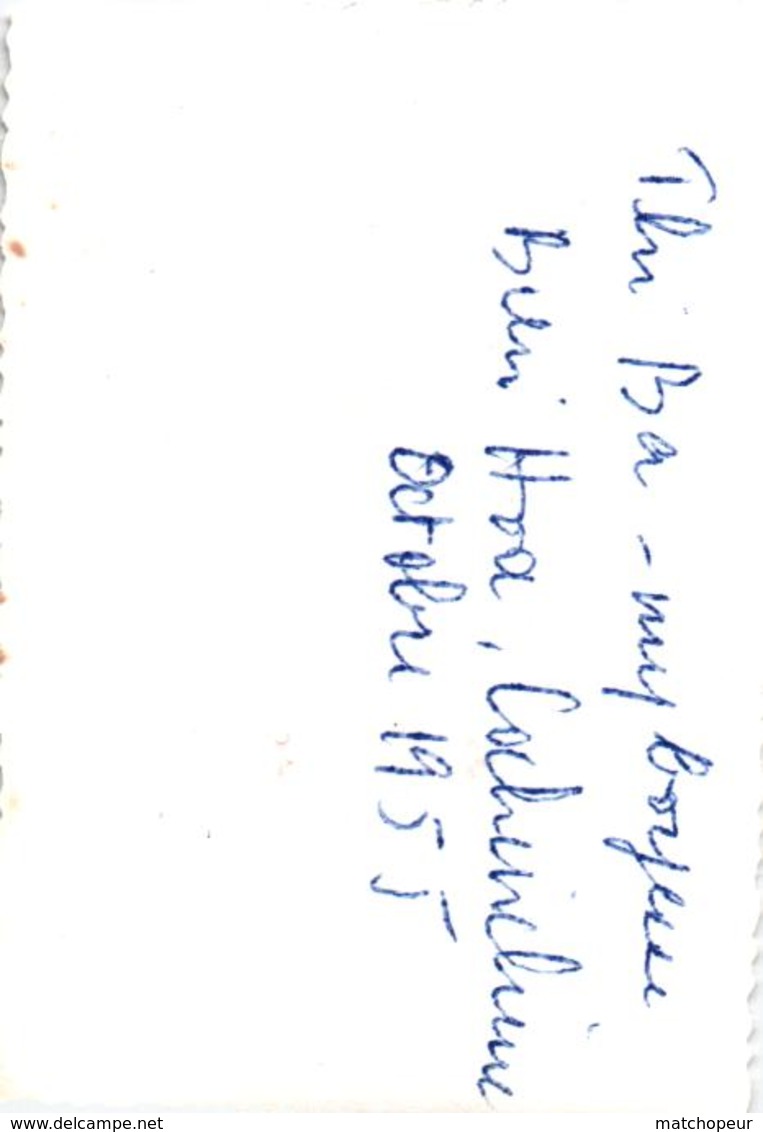 Thi Ba - my boyesse
Bien Hoa, Cochinchine
Octobre 1955
delcampe.net
matchopeur